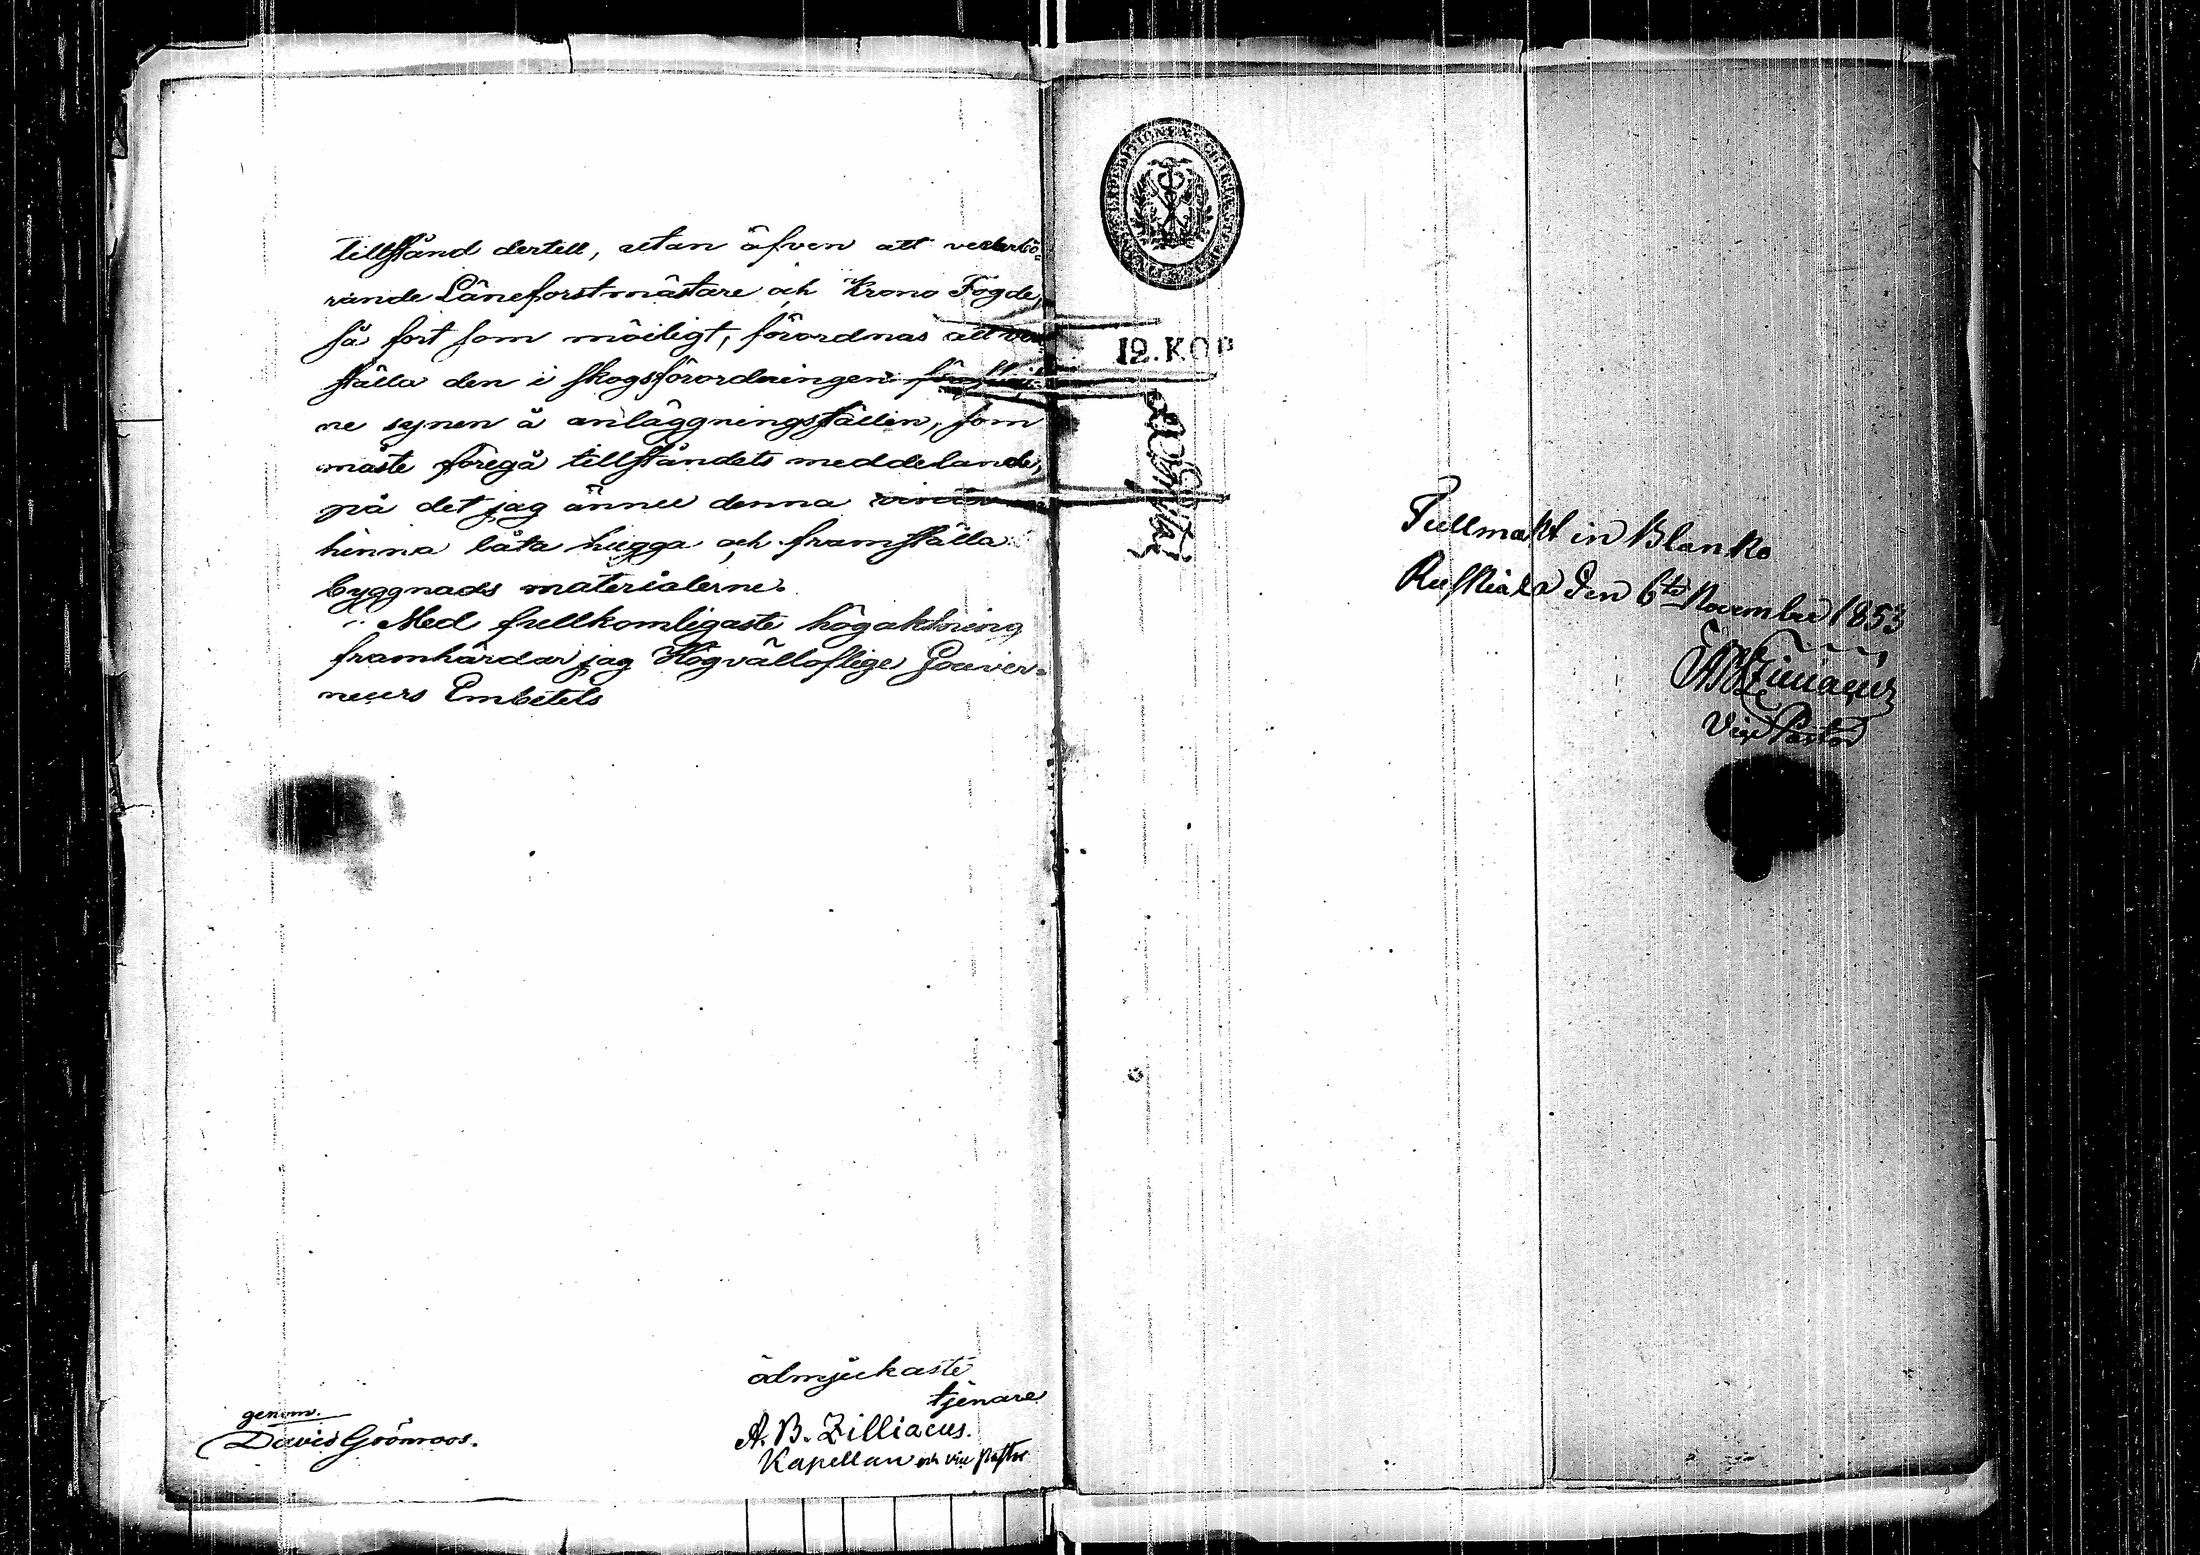 tillstånd dertill, utan äfven att vederbö-
rande Läneforstmästare och Krono Fogde,
så fort som möiligt, förordnas att verk-
ställa den i skogsförordningen föreskrif-
ne synen å anläggningsställen, som
måste föregå tillståndets meddelande,
på det jag ännu denna vinter
hinna låta hugga och framställa
byggnads materialerne.
Med fullkomligaste högaktning
framhärdar jag Högvälloflige Gouver-
neurs Embetets
ödmjukaste
tjenare
A. B. Zilliacus.
Kapellan och vice Pastor
genom.
David Grönroos.
12. KOP
Fullmakt in Blanko
Ruskiala den 6te November 1853
AB Zilliacus
Vice Pastor